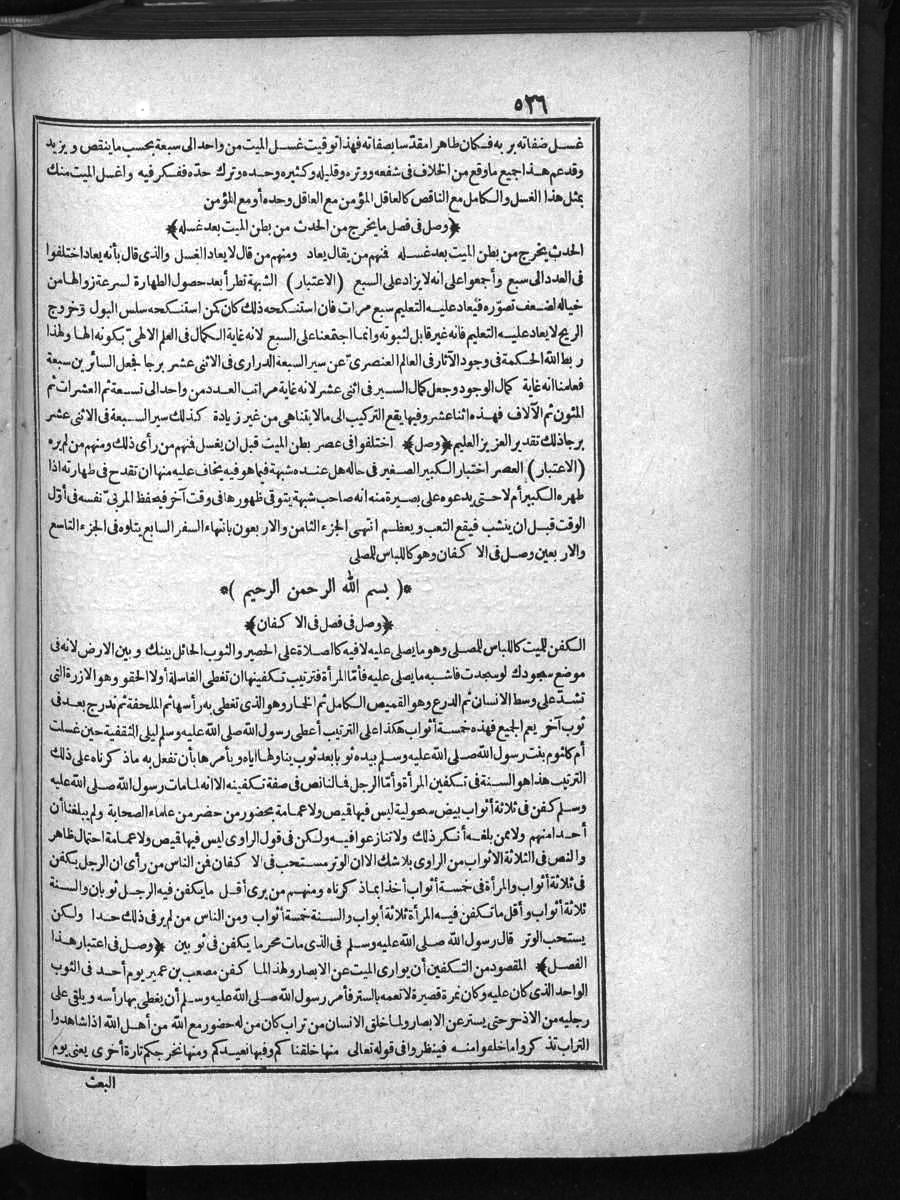 ٥٣٦
غسل صفاته بربه فكان طاهرا مقدسا بصفاته فهذا توقيت غسل الميت من واحد الى سبعة بحسب ما ينقص ويزيد
وقد عم هذا جميع ما وقع من الخلاف فى شفعه ووتره وقليله وكثيره وحده وترك حدّه ففكر فيه واغسل الميت منك
بمثل هذا الغسل والكامل مع الناقص كالعاقل المؤمن مع العاقل وحده أو مع المؤمن
﴿وصل فى فصل ما يخرج من الحدث من بطن الميت بعد غسله﴾
الحدث يخرج من بطن الميت بعد غسله فمنهم من يقال يعاد ومنهم من قال لا يعاد الغسل والذى قال بأنه يعاد اختلفوا
فى العدد الى سبع وأجمعوا على انه لا يزاد على السبع (الاعتبار) الشبهة تطرأ بعد حصول الطهارة لسرعة زوالها من
خياله لضعف تصوّره فيعاد عليه التعليم سبع مرات فان استنكحه ذلك كان كمن استنكحه سلس البول وخروج
الريح لا يعاد عليه التعليم فانه غير قابل لثبوته وانما اجتمعنا على السبع لانه غاية الكمال فى العلم الالهىّ بكونه الها ولهذا
ربط الله الحكمة فى وجود الآثار فى العالم العنصرىّ عن سير السبعة الدرارى فى الاثنى عشر برجا فجعل السائرين سبعة
فعلمنا انه غاية كمال الوجود وجعل كمال السير فى اثنى عشر لانه غاية مراتب العدد من واحد الى تسعة ثم العشرات ثم
المئون ثم الآلاف فهذه اثنا عشر وفيها يقع التركيب الى ما لا يتناهى من غير زيادة كذلك سير السبعة فى الاثنى عشر
برجا ذلك تقدير العزيز العليم ﴿وصل﴾ اختلفوا فى عصر بطن الميت قبل ان يغسل فمنهم من رأى ذلك ومنهم من لم يره
(الاعتبار) العصر اختبار الكبير الصغير فى حاله هل عنده شبهة فيما هو فيه يخاف عليه منها ان تقدح فى طهارته اذا
طهره الكبير أم لا حتى يدعوه على بصيرة منه انه صاحب شبهة يتوقى ظهورها فى وقت آخر فيحفظ المربىّ نفسه فى أوّل
الوقت قبل ان ينشب فيقع التعب ويعظم انتهى الجزء الثامن والاربعون بانتهاء السفر السابع يتلوه فى الجزء التاسع
والاربعين وصل فى الا كفان وهو كاللباس للمصلى
*( بسم الله الرحمن الرحيم )*
﴿وصل فى فصل فى الا كفان﴾
الكفن للميت كاللباس للمصلى وهو ما يصلى عليه لا فيه كالصلاة على الحصير والثوب الحائل بينك وبين الارض لانه فى
موضع سجودك لو سجدت فاشبه ما يصلى عليه فأمّا المرأة فترتيب تكفينها ان تغطى الغاسلة أولا الحقو وهو الازرة التى
تشدّ على وسط الانسان ثم الدرع وهو القميص الكامل ثم الخمار وهو الذى تغطى به رأسها ثم الملحفة ثم تدرج بعد فى
ثوب آخر يعم الجميع فهذه خمسة أثواب هكذا على الترتيب أعطى رسول الله صلى الله عليه وسلم ليلى الثقفية حين غسلت
أم كلثوم بنت رسول الله صلى الله عليه وسلم بيده ثوبا بعد ثوب يناولها اياه ويأمرها بأن تفعل به ماذ كرناه على ذلك
الترتيب هذا هو السنة فى تكفين المرأة وأمّا الرجل فما لنا نص فى صفة تكفينه الا انه لما مات رسول الله صلى الله عليه
وسلم كفن فى ثلاثة أثواب بيض سحولية ليس فيها قميص ولا عمامة بحضور من حضر من علماء الصحابة ولم يبلغنا أن
أحدا منهم ولا ممن بلغه أنكر ذلك ولا تنازعوا فيه ولكن فى قول الراوى ليس فيها قميص ولا عمامة احتمال ظاهر
والنص فى الثلاثة الاثواب من الراوى بلا شك الا ان الوتر مستحب فى الا كفان فمن الناس من رأى ان الرجل يكفن
فى ثلاثة أثواب والمرأة فى خمسة أثواب أخذا بماذ كرناه ومنهم من يرى أقل ما يكفن فيه الرجل ثوبان والسنة
ثلاثة أثواب وأقل ما تكفن فيه المرأة ثلاثة أبواب والسنة خمسة أثواب ومن الناس من لم ير فى ذلك حدا ولكن
يستحب الوتر قال رسول الله صلى الله عليه وسلم فى الذى مات محرما يكفن فى ثوبين ﴿وصل فى اعتبار هذا
الفصل﴾ المقصود من التكفين أن يوارى الميت عن الابصار ولهذا لما كفن مصعب بن عمير يوم أحد فى الثوب
الواحد الذى كان عليه وكان نمرة قصيرة لا تعمه بالستر فأمر رسول الله صلى الله عليه وسلم أن يغطى بها رأسه ويلقى على
رجليه من الاذخر حتى يستر عن الابصار ولما خلق الانسان من تراب كان من له حضور مع الله من أهل الله اذا شاهدوا
التراب تذ كروا ما خلقوا منه فينظروا فى قوله تعالى منها خلقنا كم وفيها نعيدكم ومنها نخرجكم تارة أخرى يعنى يوم
البعث